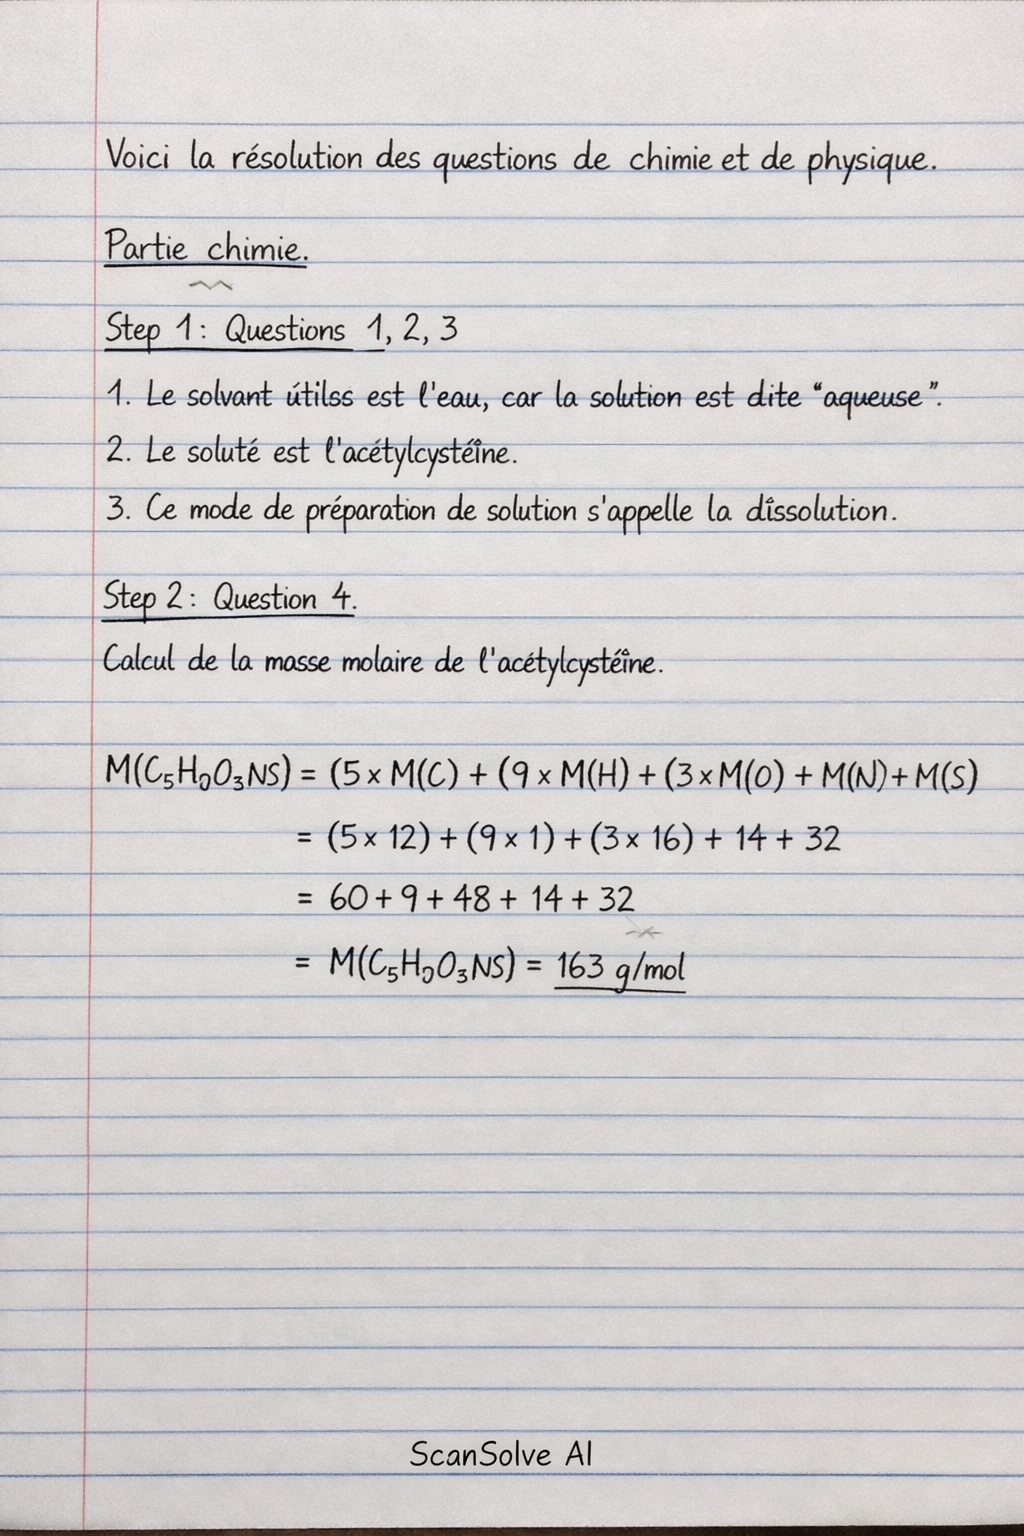 Voici la résolution des questions de chimie et de physique.
Partie chimie.
Step 1: Questions 1, 2, 3
1. Le solvant útilss est l'eau, car la solution est dite "aqueuse".
2. Le soluté est l'acétylcystéîne.
3. Ce mode de préparation de solution s'appelle la dîssolution.
Step 2: Question 4.
Calcul de la masse molaire de l'acétylcystéîne.
M(C₅H₉O₃NS) = (5 x M(C) + (9 x M(H) + (3 x M(O) + M(N) + M(S)
= (5 x 12) + (9 x 1) + (3 x 16) + 14 + 32
= 60 + 9 + 48 + 14 + 32
= M(C₅H₉O₃NS) = 163 g/mol
ScanSolve AI